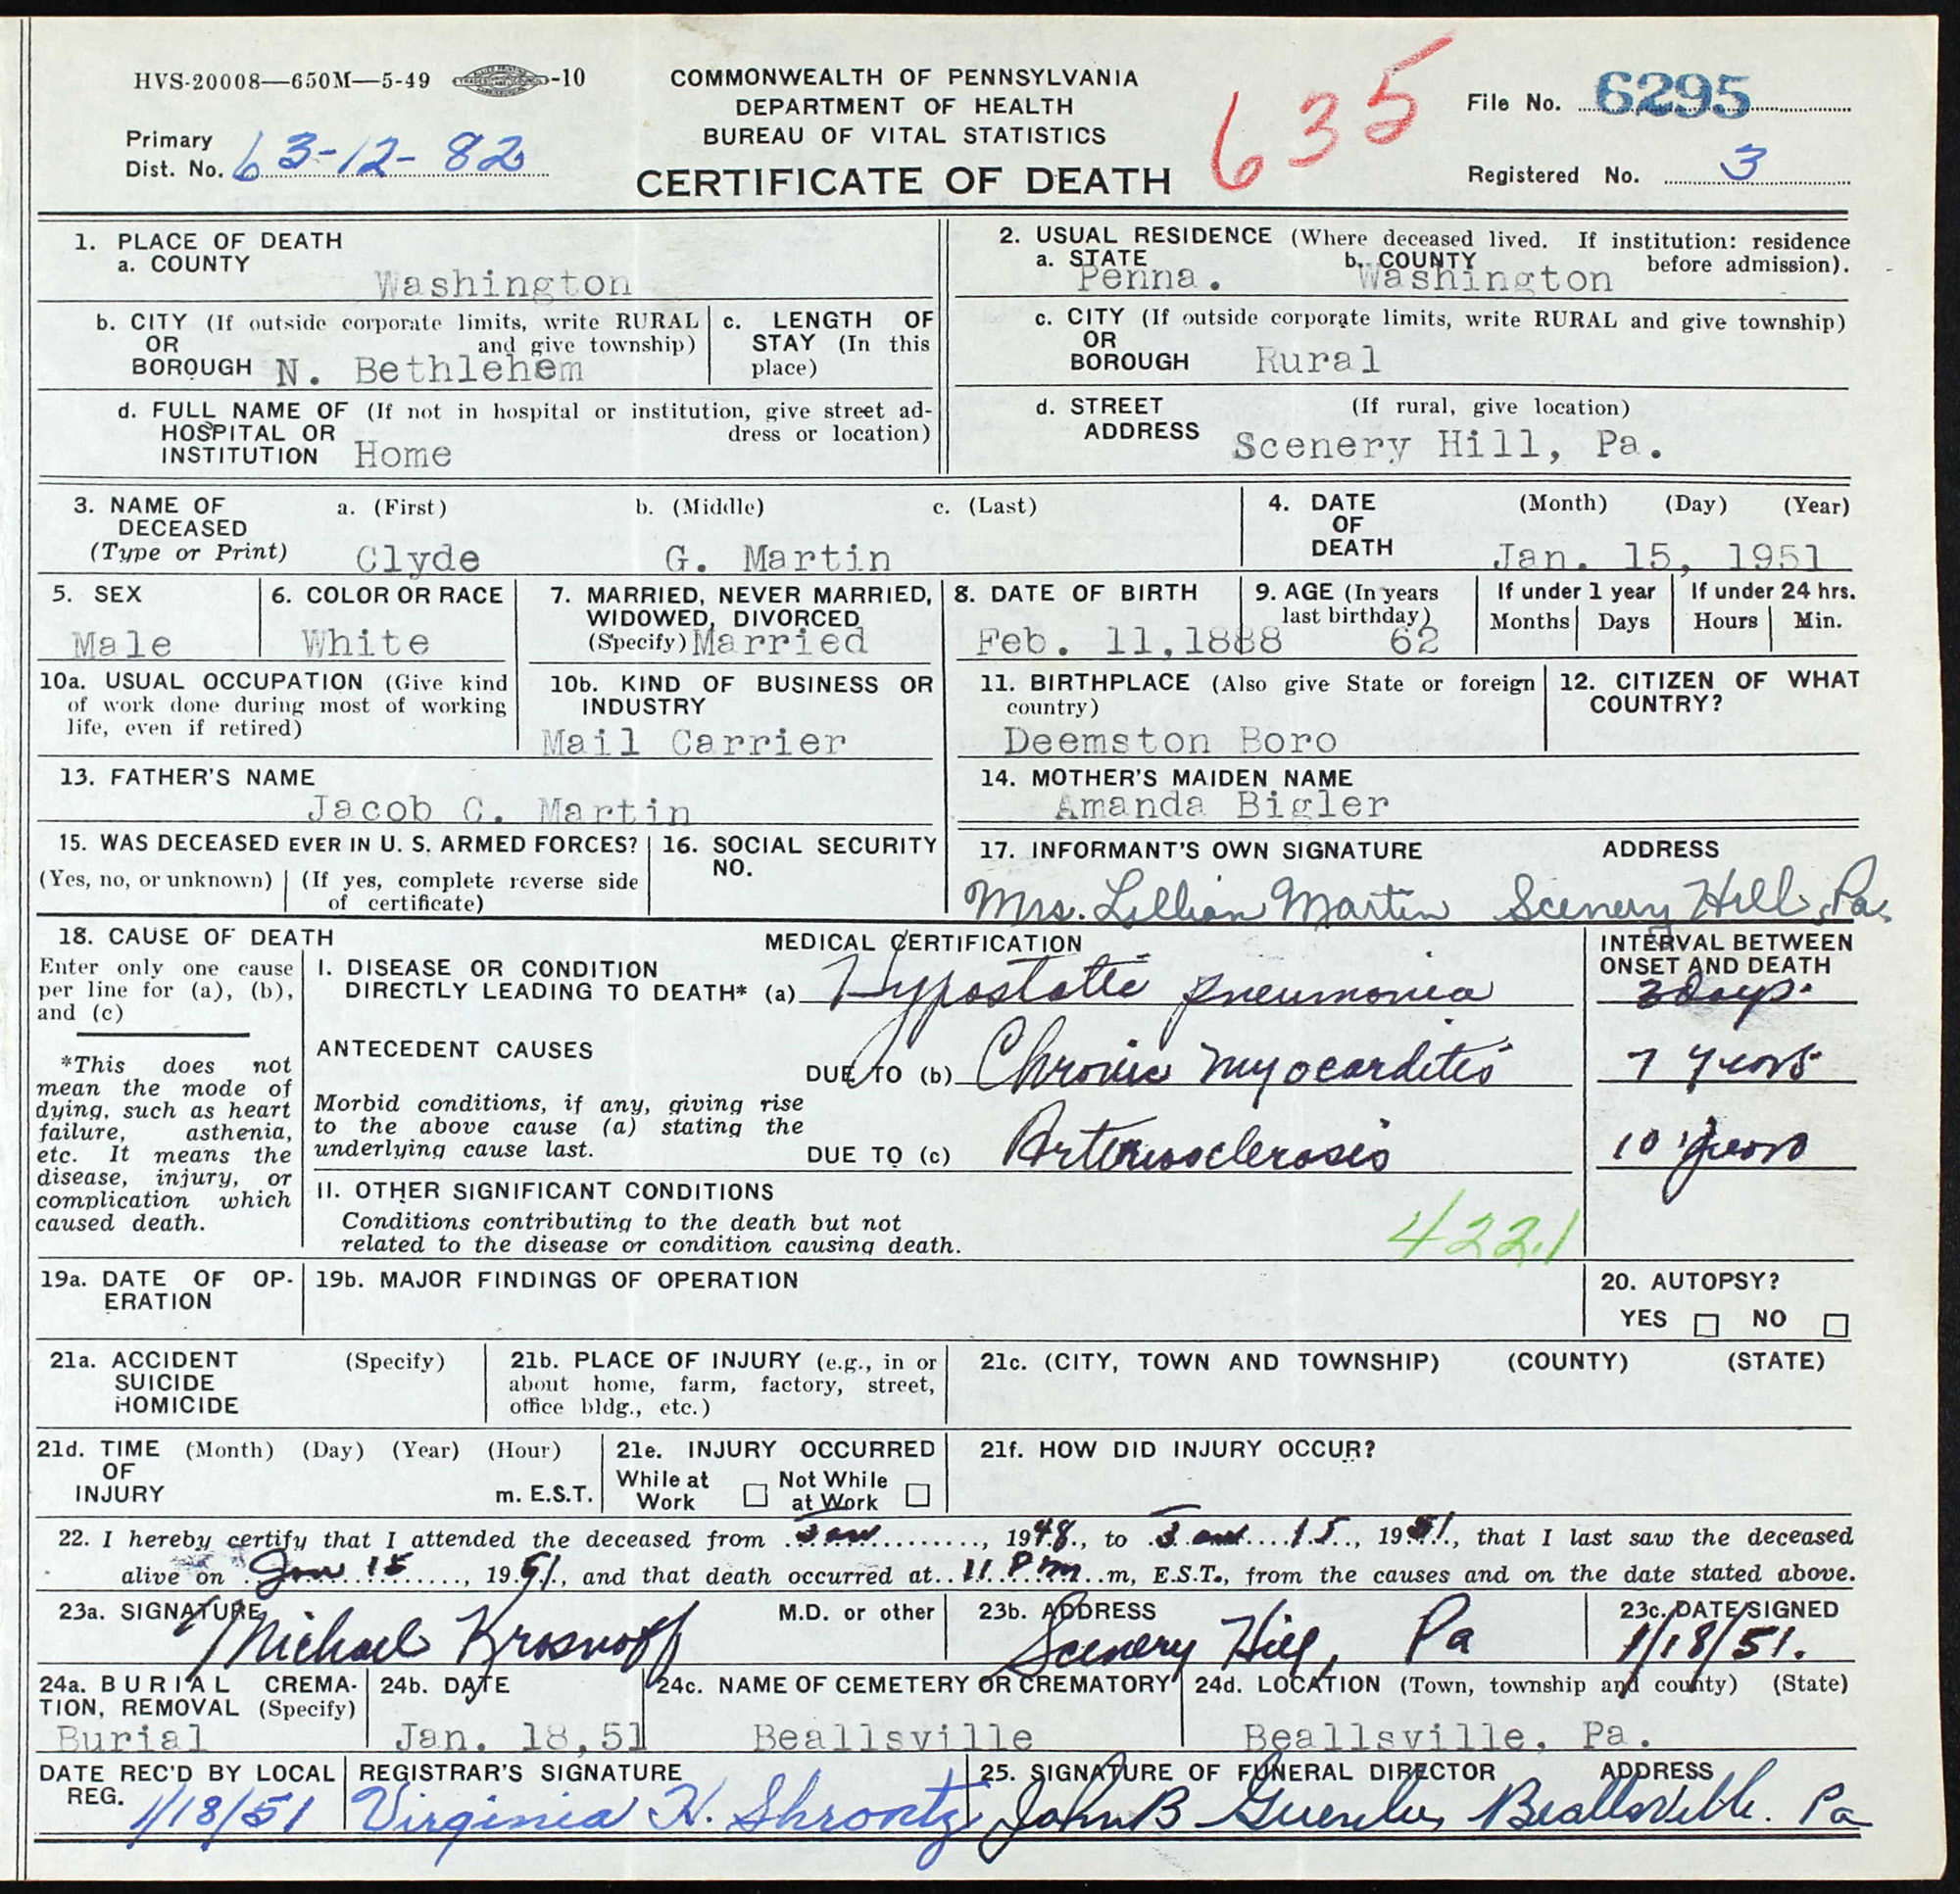 HVS-20008—650M—5-49 -10
COMMONWEALTH OF PENNSYLVANIA
DEPARTMENT OF HEALTH
BUREAU OF VITAL STATISTICS
CERTIFICATE OF DEATH
635
File No. 6295
Primary
Dist. No. 63-12-82
Registered No. 3
1. PLACE OF DEATH
a. COUNTY
Washington
b. CITY (If outside corporate limits, write RURAL
OR and give township)
BOROUGH N. Bethlehem
c. LENGTH OF
STAY (In this
place)
d. FULL NAME OF (If not in hospital or institution, give street ad-
HOSPITAL OR dress or location)
INSTITUTION Home
2. USUAL RESIDENCE (Where deceased lived. If institution: residence
a. STATE b. COUNTY before admission).
Penna. Washington
c. CITY (If outside corporate limits, write RURAL and give township)
OR
BOROUGH Rural
d. STREET (If rural, give location)
ADDRESS Scenery Hill, Pa.
3. NAME OF a. (First) b. (Middle) c. (Last)
DECEASED
(Type or Print) Clyde G. Martin
4. DATE (Month) (Day) (Year)
OF
DEATH Jan. 15, 1951
5. SEX
Male
6. COLOR OR RACE
White
7. MARRIED, NEVER MARRIED,
WIDOWED, DIVORCED
(Specify) Married
8. DATE OF BIRTH
Feb. 11,1888
9. AGE (In years
last birthday)
62
If under 1 year
Months Days
If under 24 hrs.
Hours Min.
10a. USUAL OCCUPATION (Give kind
of work done during most of working
life, even if retired)
10b. KIND OF BUSINESS OR
INDUSTRY
Mail Carrier
11. BIRTHPLACE (Also give State or foreign
country)
Deemston Boro
12. CITIZEN OF WHAT
COUNTRY?
13. FATHER'S NAME
Jacob C. Martin
14. MOTHER'S MAIDEN NAME
Amanda Bigler
15. WAS DECEASED EVER IN U. S. ARMED FORCES?
(Yes, no, or unknown) (If yes, complete reverse side
of certificate)
16. SOCIAL SECURITY
NO.
17. INFORMANT'S OWN SIGNATURE ADDRESS
Mrs. Lillian Martin Scenery Hill, Pa.
18. CAUSE OF DEATH
Enter only one cause
per line for (a), (b),
and (c)
*This does not
mean the mode of
dying, such as heart
failure, asthenia,
etc. It means the
disease, injury, or
complication which
caused death.
MEDICAL CERTIFICATION
I. DISEASE OR CONDITION
DIRECTLY LEADING TO DEATH* (a) Hypostatic pneumonia
ANTECEDENT CAUSES
DUE TO (b) Chronic myocarditis
Morbid conditions, if any, giving rise
to the above cause (a) stating the
underlying cause last.
DUE TO (c) Arteriosclerosis
II. OTHER SIGNIFICANT CONDITIONS
Conditions contributing to the death but not
related to the disease or condition causing death.
422.1
INTERVAL BETWEEN
ONSET AND DEATH
3 days.
7 years
10 years
19a. DATE OF OP-
ERATION
19b. MAJOR FINDINGS OF OPERATION
20. AUTOPSY?
YES NO
21a. ACCIDENT (Specify)
SUICIDE
HOMICIDE
21b. PLACE OF INJURY (e.g., in or
about home, farm, factory, street,
office bldg., etc.)
21c. (CITY, TOWN AND TOWNSHIP) (COUNTY) (STATE)
21d. TIME (Month) (Day) (Year) (Hour)
OF
INJURY m. E.S.T.
21e. INJURY OCCURRED
While at Not While
Work at Work
21f. HOW DID INJURY OCCUR?
22. I hereby certify that I attended the deceased from Jan, 1948, to Jan 15, 1951, that I last saw the deceased
alive on Jan 15, 1951, and that death occurred at 11 Pm m, E.S.T., from the causes and on the date stated above.
23a. SIGNATURE M.D. or other
Michael Krosnoff
23b. ADDRESS
Scenery Hill, Pa
23c. DATE SIGNED
1/18/51.
24a. BURIAL CREMA-
TION, REMOVAL (Specify)
Burial
24b. DATE
Jan. 18,51
24c. NAME OF CEMETERY OR CREMATORY
Beallsville
24d. LOCATION (Town, township and county) (State)
Beallsville, Pa.
DATE REC'D BY LOCAL
REG.
1/18/51
REGISTRAR'S SIGNATURE
Virginia H. Shrontz
25. SIGNATURE OF FUNERAL DIRECTOR ADDRESS
John B Beallsville. Pa